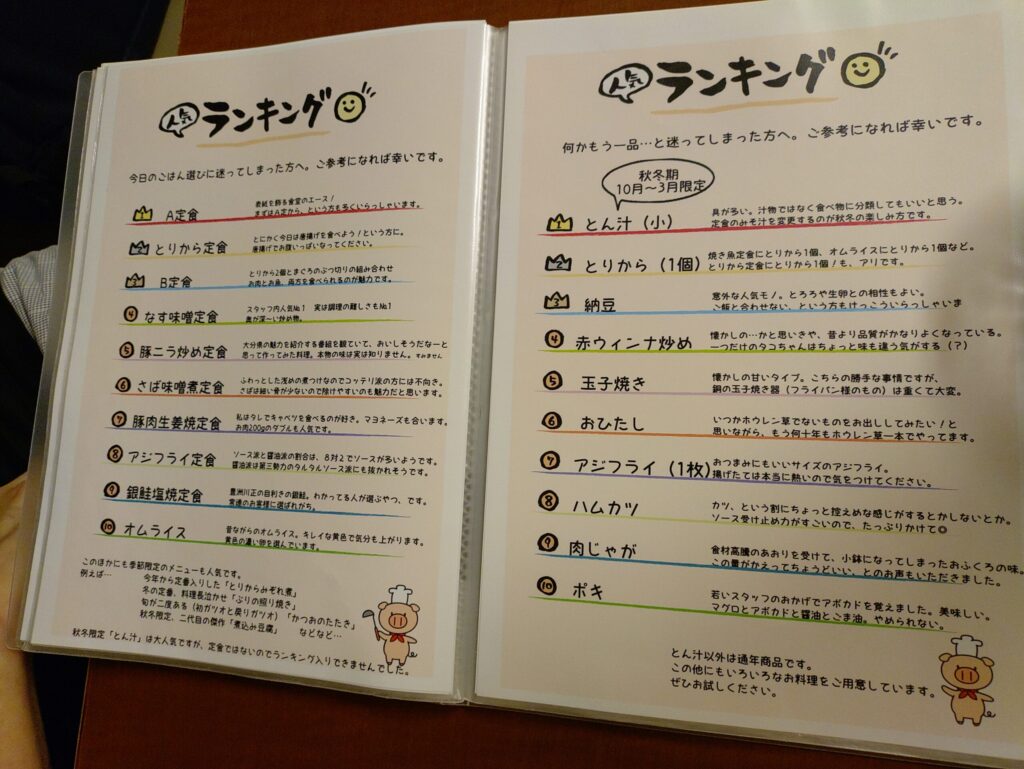 人気 ランキング
今日のごはん選びに迷ってしまった方へ。ご参考になれば幸いです。
1 A定食
表紙を飾る食堂のエース！
まずはA定から、という方も多くいらっしゃいます。
2 とりから定食
とにかく今日は唐揚げを食べよう！という方に。
唐揚げでお腹いっぱいなってください。
3 B定食
とりから2個とまぐろのぶつ切りの組み合わせ
お肉とお魚、両方を食べられるのが魅力です。
4 なす味噌定食
スタッフ内人気№1 実は調理の難しさも№1
奥が深～い炒め物。
5 豚ニラ炒め定食
大分県の魅力を紹介する番組を観ていて、おいしそうだなーと
思って作ってみた料理。本物の味は実は知りません。すみません
6 さば味噌煮定食
ふわっとした浅めの煮つけなのでコッテリ派の方には不向き。
さばは細い骨が少ないので除けやすいのも魅力だと思います。
7 豚肉生姜焼定食
私はタレでキャベツを食べるのが好き。マヨネーズも合います。
お肉200gのダブルも人気です。
8 アジフライ定食
ソース派と醤油派の割合は、8対2でソースが多いようです。
醤油派は第三勢力のタルタルソース派にも抜かれそうです。
9 銀鮭塩焼定食
豊洲川正の目利きの銀鮭。わかってる人が選ぶやつ、です。
常連のお客様に選ばれがち。
10 オムライス
昔ながらのオムライス。キレイな黄色で気分も上がります。
黄色の濃い卵を選んでいます。
このほかにも季節限定のメニューも人気です。
例えば…
今年から定番入りした「とりからみぞれ煮」
冬の定番、料理長泣かせ「ぶりの照り焼き」
旬が二度ある（初ガツオと戻りガツオ）「かつおのたたき」
秋冬限定、二代目の傑作「煮込み豆腐」 などなど…
秋冬限定「とん汁」は大人気ですが、定食ではないのでランキング入りできませんでした。
人気 ランキング
何かもう一品…と迷ってしまった方へ。ご参考になれば幸いです。
秋冬期
10月～3月限定
1 とん汁（小）
具が多い。汁物ではなく食べ物に分類してもいいと思う。
定食のみそ汁を変更するのが秋冬の楽しみ方です。
2 とりから（1個）
焼き魚定食にとりから1個、オムライスにとりから1個など。
とりから定食にとりから1個！も、アリです。
3 納豆
意外な人気モノ。とろろや生卵との相性もよい。
ご飯と合わせない、という方もけっこういらっしゃいま
4 赤ウィンナ炒め
懐かしの…かと思いきや、昔より品質がかなりよくなっている。
一つだけのタコちゃんはちょっと味も違う気がする（？）
5 玉子焼き
懐かしの甘いタイプ。こちらの勝手な事情ですが、
銅の玉子焼き器（フライパン様のもの）は重くて大変。
6 おひたし
いつかホウレン草でないものをお出ししてみたい！と
思いながら、もう何十年もホウレン草一本でやってます。
7 アジフライ（1枚）
おつまみにもいいサイズのアジフライ。
揚げたては本当に熱いので気をつけてください。
8 ハムカツ
カツ、という割にちょっと控えめな感じがするとかしないとか。
ソース受け止め力がすごいので、たっぷりかけて◎
9 肉じゃが
食材高騰のあおりを受けて、小鉢になってしまったおふくろの味。
この量がかえってちょうどいい、とのお声もいただきました。
10 ポキ
若いスタッフのおかげでアボカドを覚えました。美味しい。
マグロとアボカドと醤油とごま油。やめられない。
とん汁以外は通年商品です。
この他にもいろいろなお料理をご用意しています。
ぜひお試しください。